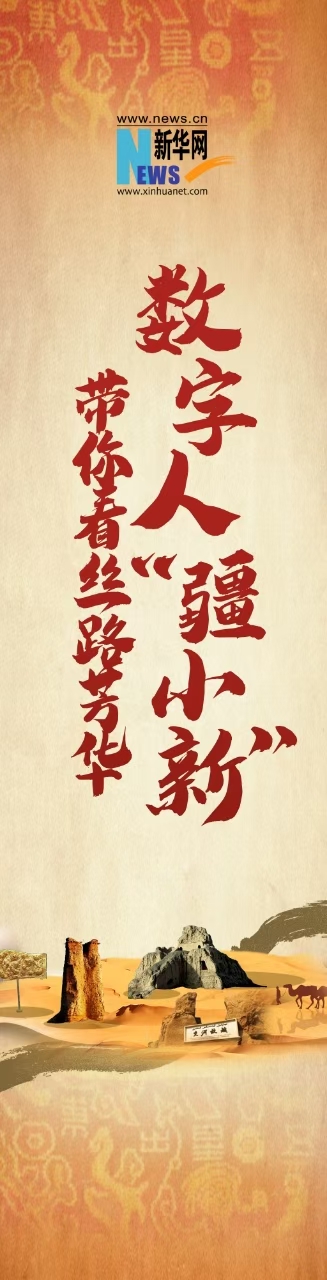 www.news.cn
新华网
NEWS
www.xinhuanet.com
数字人“疆小新”
带你看丝路芳华